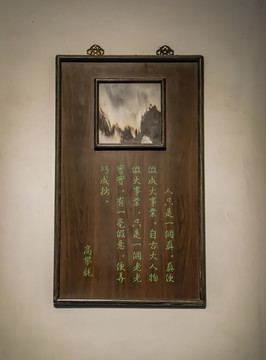 人只是一個真，真便
做成大事業。自古大人物
做大事業，只是一個老老
實實，有一毫做意，便弄
巧成拙。
高攀龍